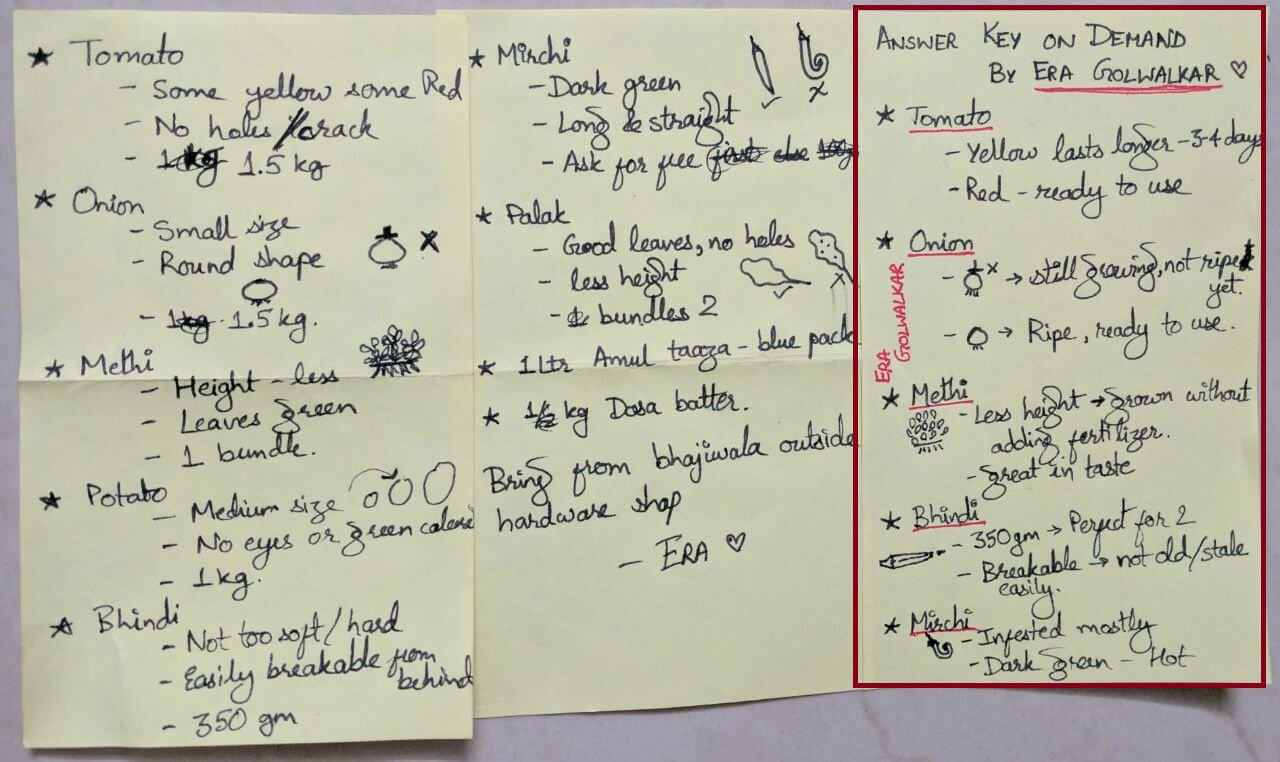 ★ Tomato
- Some yellow some Red
- No holes / crack
- 1.5 kg
★ Onion
- Small size
- Round shape
- 1.5 kg.
★ Methi
- Height - less
- Leaves green
- 1 bundle.
★ Potato
- Medium size
- No eyes or green colored
- 1 kg.
★ Bhindi
- Not too soft / hard
- Easily breakable from behind
- 350 gm
★ Mirchi
- Dark green
- Long & straight
- Ask for free
★ Palak
- Good leaves, no holes
less height
- bundles 2
★ 1 Ltr Amul taaza - blue pack
★ kg Dosa batter.
Bring from bhajiwala outside
hardware shop
- ERA ♡
ANSWER KEY ON DEMAND
BY ERA GOLWALKAR ♡
★ Tomato
- Yellow lasts longer - 3-4 days
- Red - ready to use
★ Onion
- x → still growing, not ripe
yet.
- → Ripe, ready to use.
ERA
GOLWALKAR
★ Methi
- Less height → grown without
adding fertilizer.
- great in taste
★ Bhindi
- 350gm → Perfect for 2
- Breakable → not old/stale
easily.
★ Mirchi
- Infested mostly
- Dark green - Hot